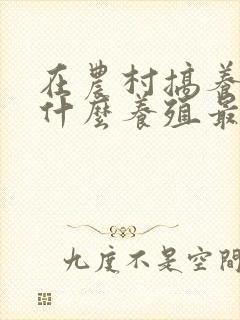 在農村搞養
什麼養殖最
九度不是空間